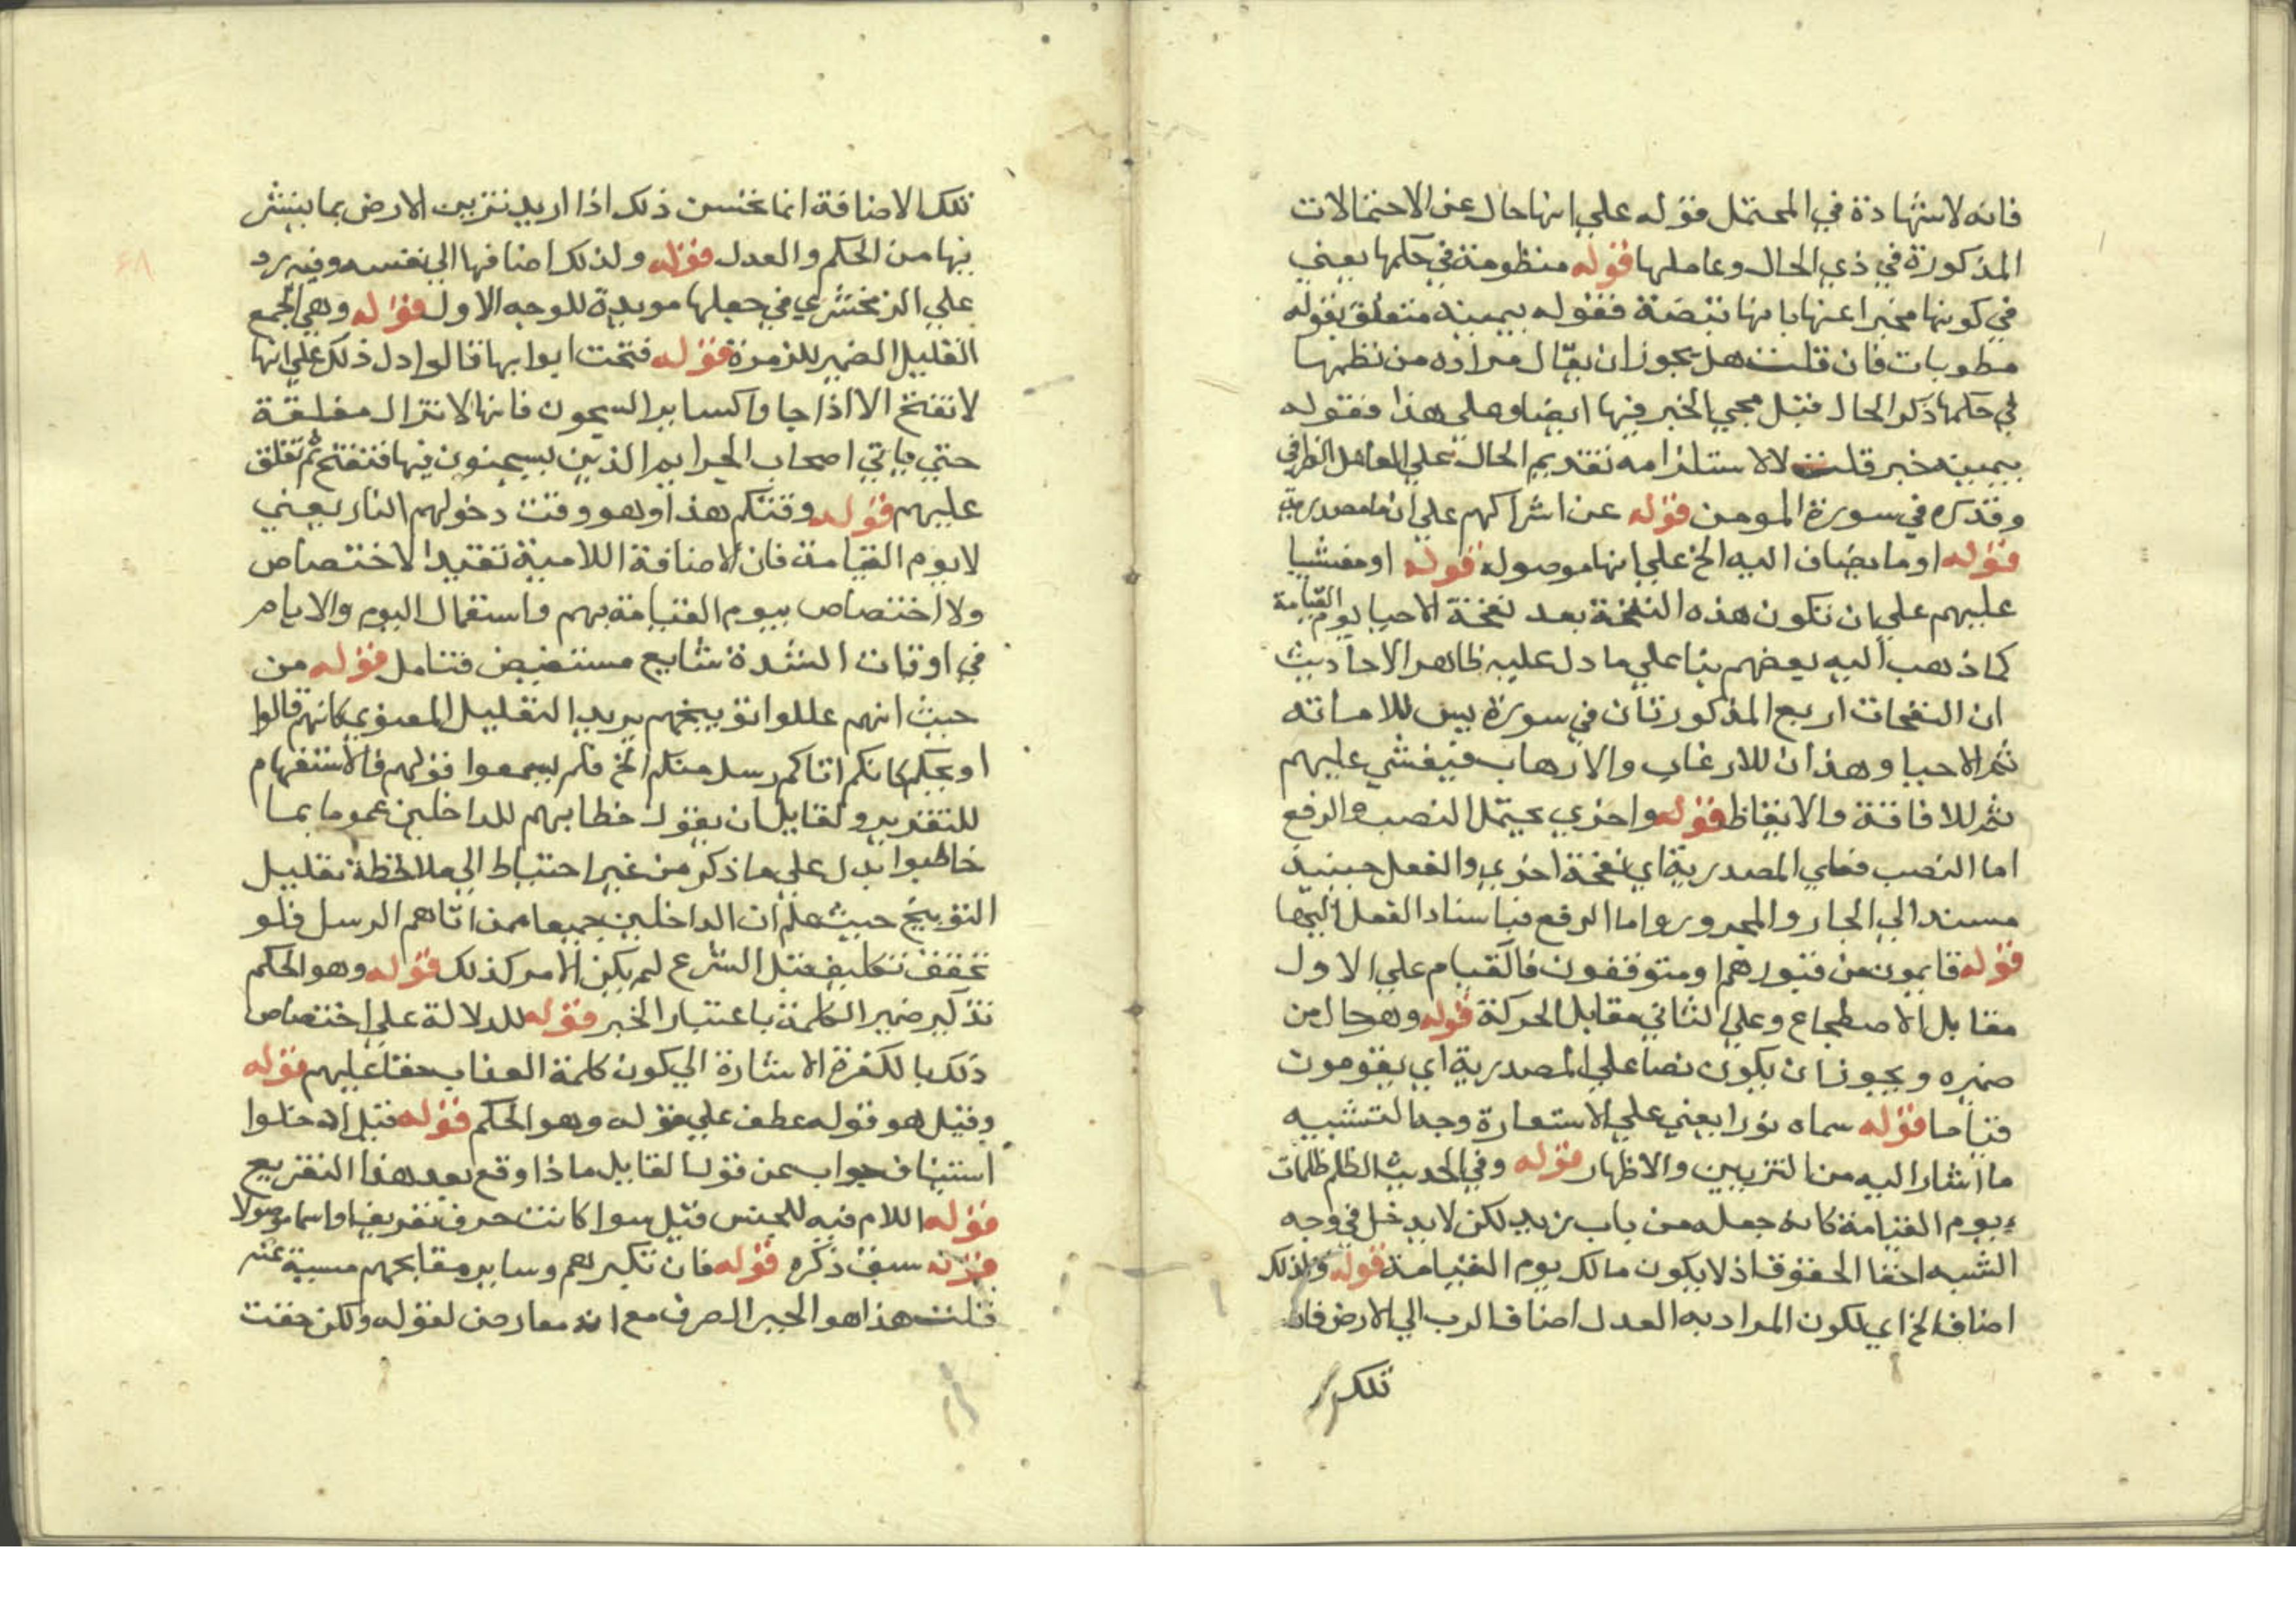 فانه لا شهادة في المحتمل قوله علي انها حال عن الاحتمالات
المذكورة في ذي الحال وعاملها قوله منظومة في حكمها يعني
في كونها مخبرا عنها بانها قبضة فقوله بيمينه متعلق بقوله
مطويات فان قلت هل يجوز ان يقال مراده من نظمها
في حكمها ذكر الحال قبل مجي الخبر فيها ايضا وعلي هذا فقوله
بيمينه خبر قلت لا لاستلزامه تقديم الحال علي العامل الظرفي
وقد كره في سورة المومن قوله عن اشراكهم علي ان ما مصدرية
قوله او ما يضاف اليه الخ علي انها موصولة قوله او مغشيا
عليهم علي ان تكون هذه النفخة بعد نفخة الاحيا يوم القيامة
كما ذهب اليه بعضهم بنا علي ما دل عليه ظاهر الاحاديث
ان النفخات اربع المذكورتان في سورة يس للاماته
ثم الاحيا وهذان للارغاب والارهاب فيغشي عليهم
ثم للافاقة والايقاظ قوله واخري يحتمل النصب والرفع
اما النصب فعلي المصدرية اي نفخة اخري والفعل حينيذ
مسند الي الجار والمجرور واما الرفع فباسناد الفعل اليها
قوله قايمون من قبورهم او متوقفون فالقيام علي الاول
مقابل الاضطجاع وعلي الثاني مقابل الحركة قوله وهو حال من
ضميره ويجوز ان يكون نصبا علي المصدرية اي يقومون
قياما قوله سماه نورا يعني علي الاستعارة وجه التشبيه
ما اشار اليه من التزيين والاظهار قوله وفي الحديث الظلم ظلمات
يوم القيامة كانه جعله من باب زيد لكن لا يدخل في وجه
الشبه اخفا الحقوق اذ لا يكون ذلك يوم القيامة قوله ولذلك
اضاف الخ اي لكون المراد به العدل اضاف الرب الي الارض فان
تلك
تلك الاضافة انما تحسن ذلك اذا اريد تزيين الارض بما ينشر
فيها من الحكم والعدل قوله ولذلك اضافها الي نفسه وفيه رد
علي الزمخشري في جعلها مويدة للوجه الاول قوله وهي الجمع
القليل الضمير للزمرة قوله فتحت ابوابها قالوا دل ذلك علي انها
لا تفتح الا اذا جاوا كساير السجون فانها لا تزال مغلقة
حتي ياتي اصحاب الجرايم الذين يسجنون فيها فتفتح ثم تغلق
عليهم قوله وقتكم هذا وهو وقت دخولهم النار يعني
لا يوم القيامة فان الاضافة اللامية تفيد الاختصاص
ولا اختصاص بيوم القيامة بهم واستعمال اليوم والايام
في اوقات الشدة شايع مستفيض فتامل قوله من
حيث انهم عللوا توبيخهم يريد التعليل المعنوي كانهم قالوا
اوبخكم كانكم اتاكم رسل منكم الخ فلم يسمعوا قولهم فالاستفهام
للتقرير ولقايل ان يقول خطابهم للداخلين عموما بما
خاطبوا يدل علي ما ذكر من غير احتياط الي ملاحظة تعليل
التوبيخ حيث علم ان الداخلين جميعا ممن اتاهم الرسل فلو
تحقق تكليف قبل الشرع لم يكن الامر كذلك قوله وهو الحكم
تذكير ضمير الكلمة باعتبار الخبر قوله للدلالة علي اختصاص
ذلك بالكفرة الاشارة الي كون كلمة العذاب حقا عليهم قوله
وقيل هو قوله عطف علي قوله وهو الحكم قوله قيل ادخلوا
استيناف جواب عن قول القايل ماذا وقع بعد هذا التقريع
قوله اللام فيه للجنس قيل سوا كانت حرف تعريف او اسما موصولا
قوله سبق ذكره قوله فان تكبرهم وساير مقابحهم مسببة عنه
قلت هذا هو الجبر الصرف مع انه معارض لقوله ولكن حقت